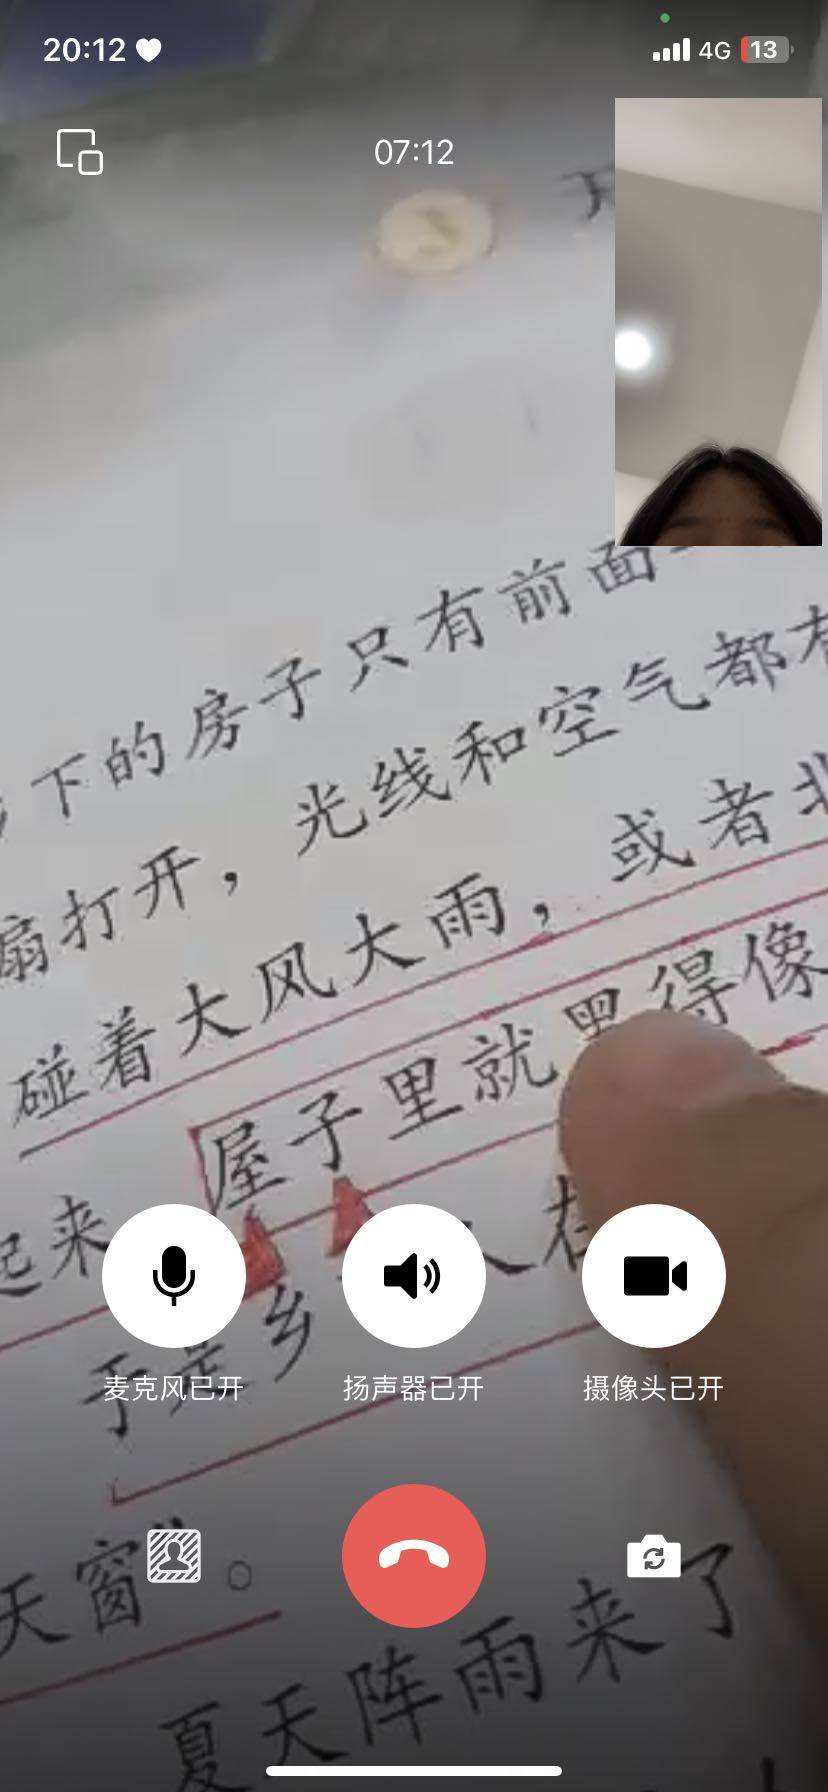 20:12
4G 13
07:12
下的房子只有前面
扇打开，光线和空气都有
碰着大风大雨，或者北
屋子里就黑得像
起来
人在
于是乡
麦克风已开 扬声器已开 摄像头已开
天窗”。
夏天阵雨来了